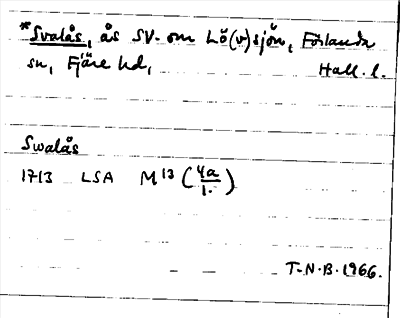 *Svalås, ås SV. om Lö(v)sjön, Förlanda
sn, Fjäre hd, Hall. l.
Swalås
1713 LSA M13 (4a/1.)
T.N.B. 1966.